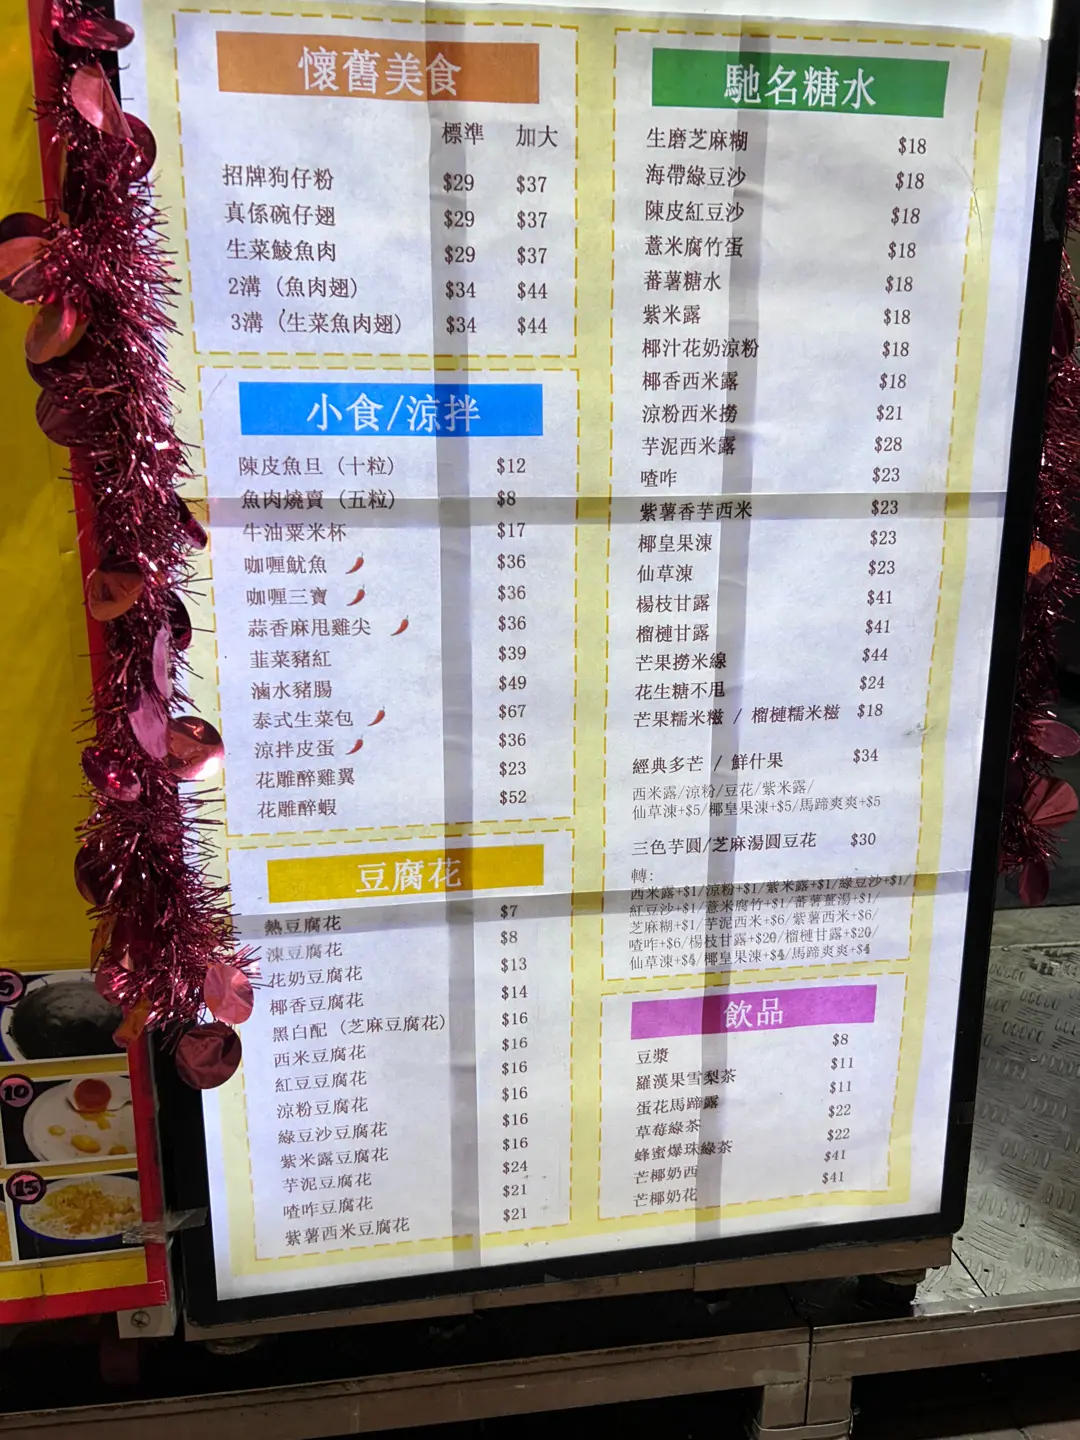 懷舊美食
標準 加大
招牌狗仔粉 $29 $37
真係碗仔翅 $29 $37
生菜鯪魚肉 $29 $37
2溝（魚肉翅） $34 $44
3溝（生菜魚肉翅） $34 $44
小食/涼拌
陳皮魚旦（十粒） $12
魚肉燒賣（五粒） $8
牛油粟米杯 $17
咖喱魷魚 $36
咖喱三寶 $36
蒜香麻甩雞尖 $36
韭菜豬紅 $39
滷水豬腸 $49
泰式生菜包 $67
涼拌皮蛋 $36
花雕醉雞翼 $23
花雕醉蝦 $52
豆腐花
熱豆腐花 $7
凍豆腐花 $8
花奶豆腐花 $13
椰香豆腐花 $14
黑白配（芝麻豆腐花） $16
西米豆腐花 $16
紅豆豆腐花 $16
涼粉豆腐花 $16
綠豆沙豆腐花 $16
紫米露豆腐花 $16
芋泥豆腐花 $24
喳咋豆腐花 $21
紫薯西米豆腐花 $21
馳名糖水
生磨芝麻糊 $18
海帶綠豆沙 $18
陳皮紅豆沙 $18
薏米腐竹蛋 $18
蕃薯糖水 $18
紫米露 $18
椰汁花奶涼粉 $18
椰香西米露 $18
涼粉西米撈 $21
芋泥西米露 $28
喳咋 $23
紫薯香芋西米 $23
椰皇果凍 $23
仙草凍 $23
楊枝甘露 $41
榴槤甘露 $41
芒果撈米線 $44
花生糖不甩 $24
芒果糯米糍 / 榴槤糯米糍 $18
經典多芒 / 鮮什果 $34
西米露/涼粉/豆花/紫米露/
仙草凍+$5/椰皇果凍+$5/馬蹄爽爽+$5
三色芋圓/芝麻湯圓豆花 $30
轉:
西米露+$1/涼粉+$1/紫米露+$1/綠豆沙+$1/
紅豆沙+$1/薏米腐竹+$1/蕃薯薑湯+$1/
芝麻糊+$1/芋泥西米+$6/紫薯西米+$6/
喳咋+$6/楊枝甘露+$20/榴槤甘露+$20/
仙草凍+$4/椰皇果凍+$4/馬蹄爽爽+$4
飲品
豆漿 $8
羅漢果雪梨茶 $11
蛋花馬蹄露 $11
草莓綠茶 $22
蜂蜜爆珠綠茶 $22
芒椰奶西 $41
芒椰奶花 $41
5
10
15